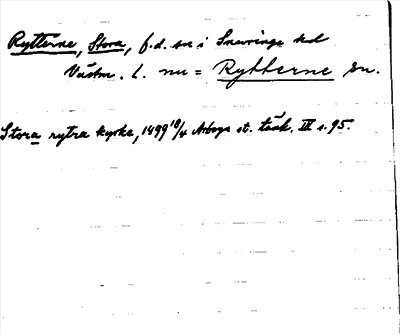 Rytterne, Stora, f.d. sn i Snevringe hd
Västm. l. nu = Rytterne sn.
Stora rytra kyrke, 1499 18/4 Arboga st. tänk. III s. 95.